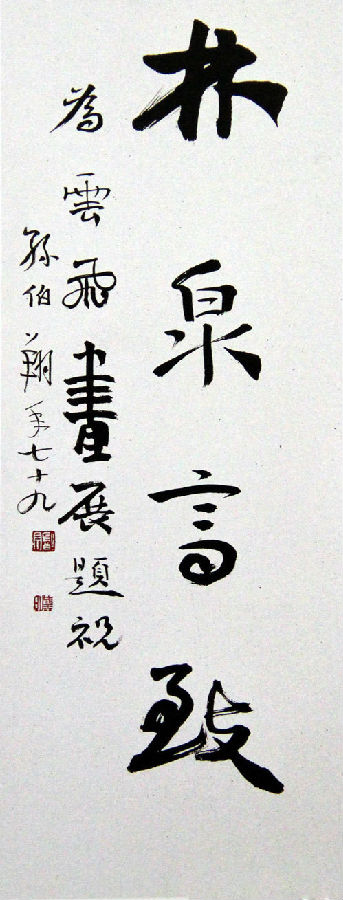 林泉高致
為雲飛畫展題祝
孫伯翔年七十九